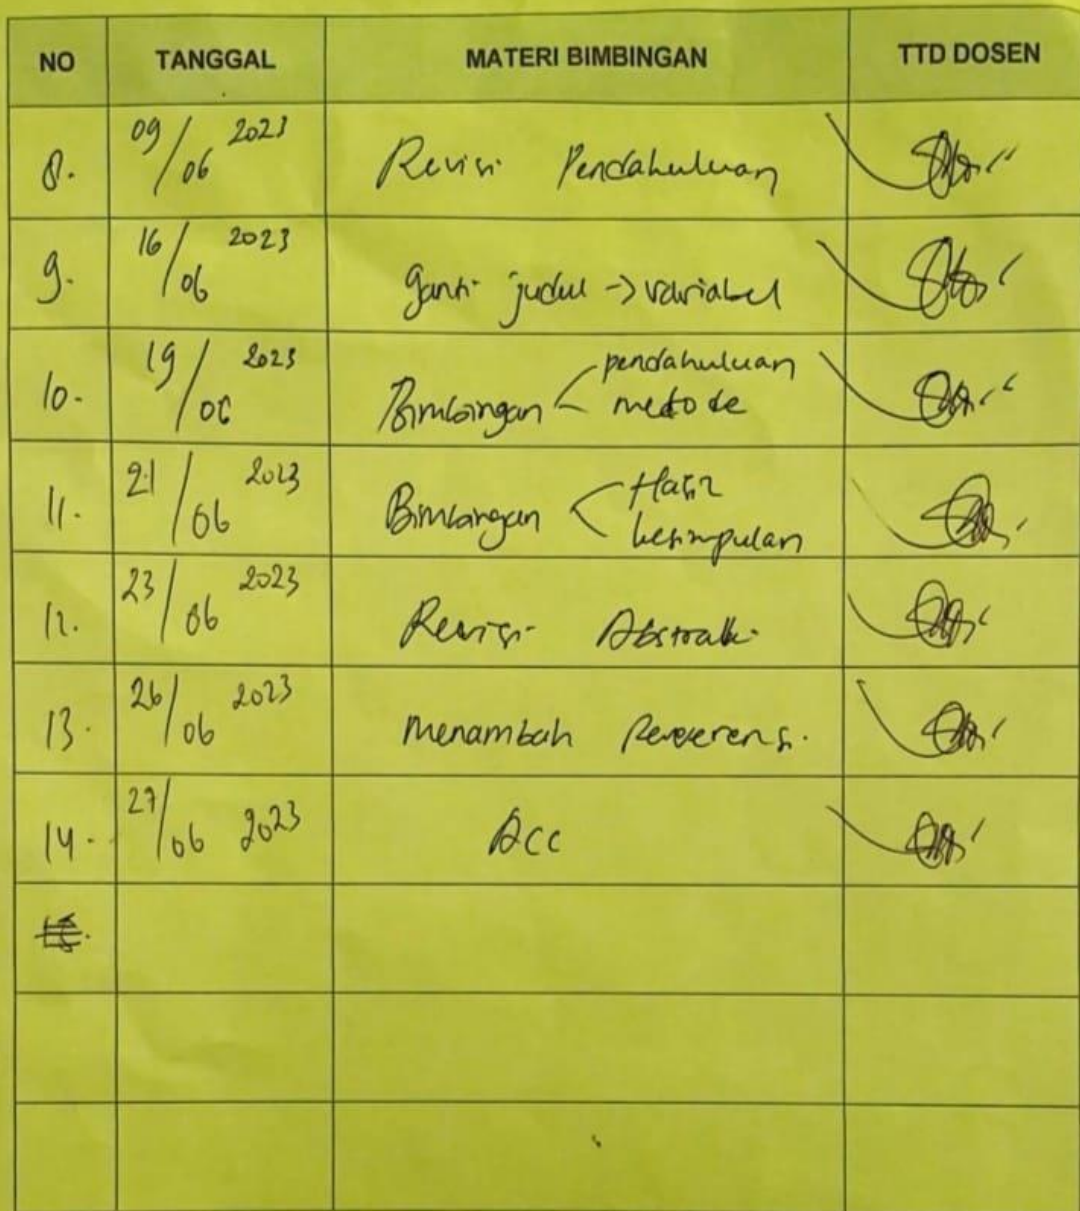 NO TANGGAL MATERI BIMBINGAN TTD DOSEN
8. 09/06 2023 Revisi Pendahuluan
9. 16/06 2023 Ganti judul -> variabel
10. 19/06 2023 Bimbingan < pendahuluan
metode
11. 21/06 2023 Bimbingan < Hasil
kesimpulan
12. 23/06 2023 Revisi Abstrak
13. 26/06 2023 Menambah
14. 27/06 2023 Acc